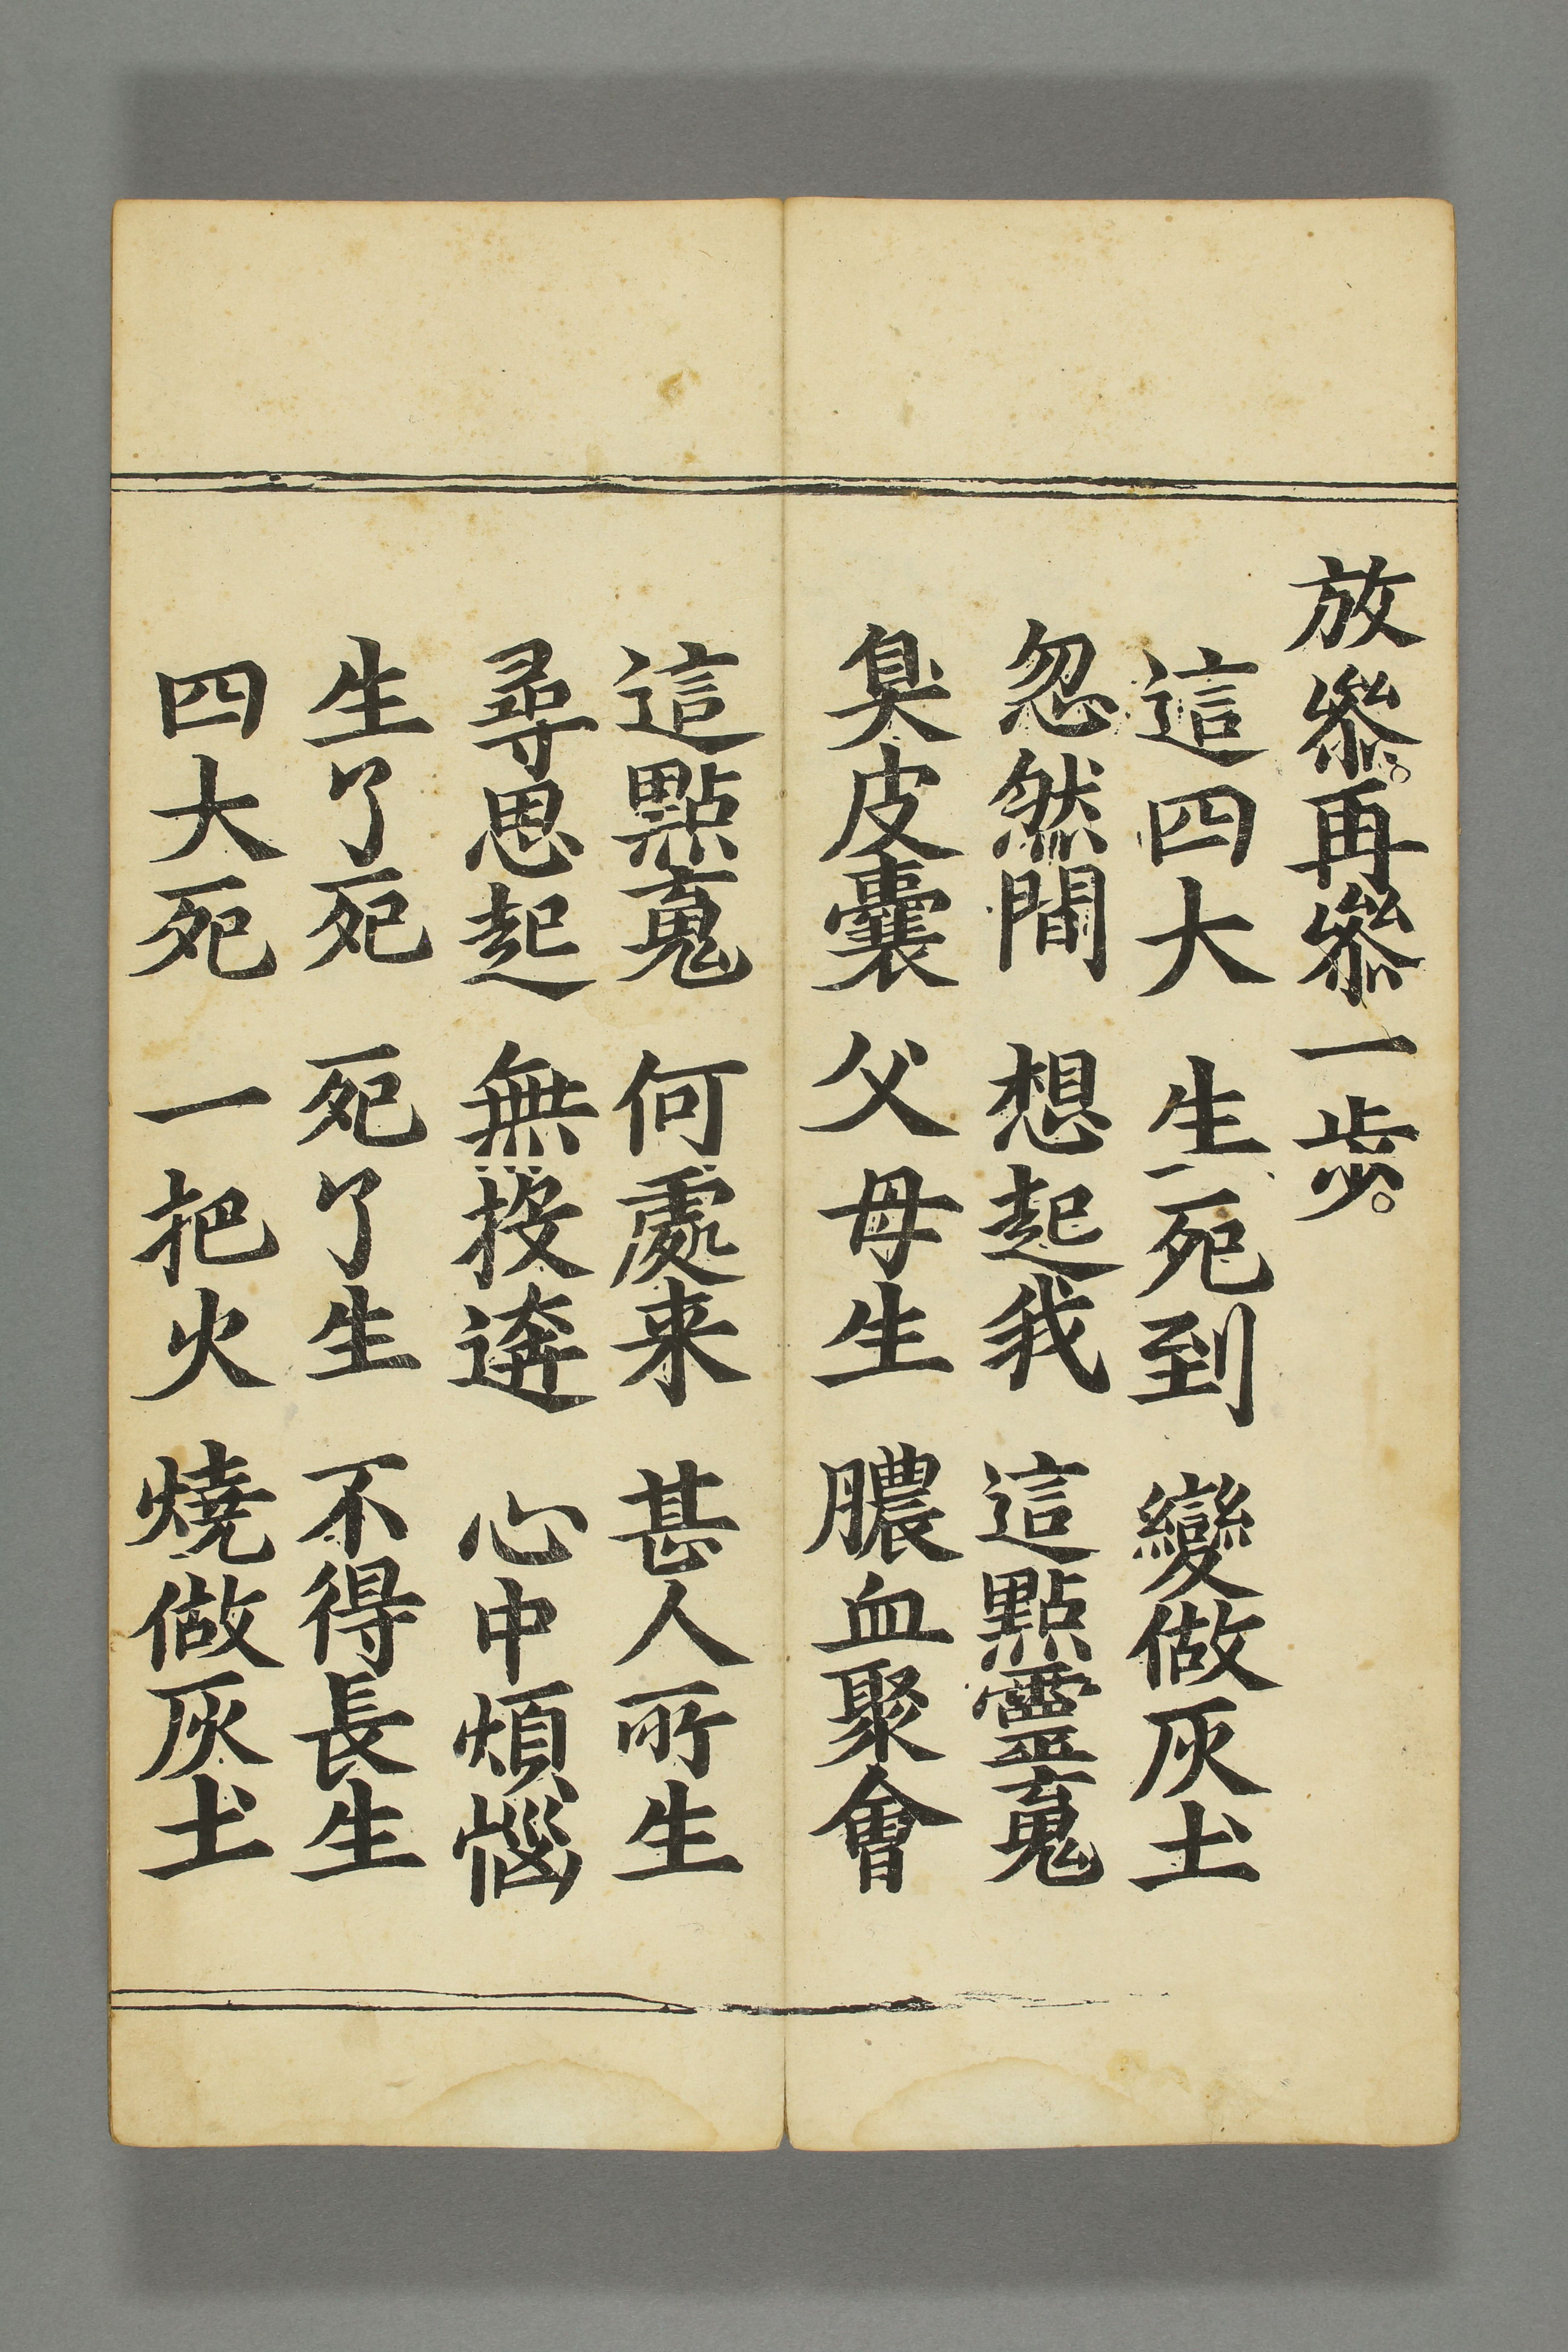 放叅。再叅一步。
這四大　生死到　變做灰土
忽然間　想起我　這點靈䰟
臭皮囊　父母生　膿血聚會
這點䰟　何處来　甚人所生
尋思起　無投逩　心中煩惱
生了死　死了生　不得長生
四大死　一把火　燒做灰土